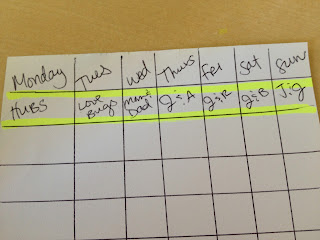 Monday Tues Wed Thurs Fri Sat Sun
HUBS Love Bugs Mom & Dad J & A J & R J & B J & J